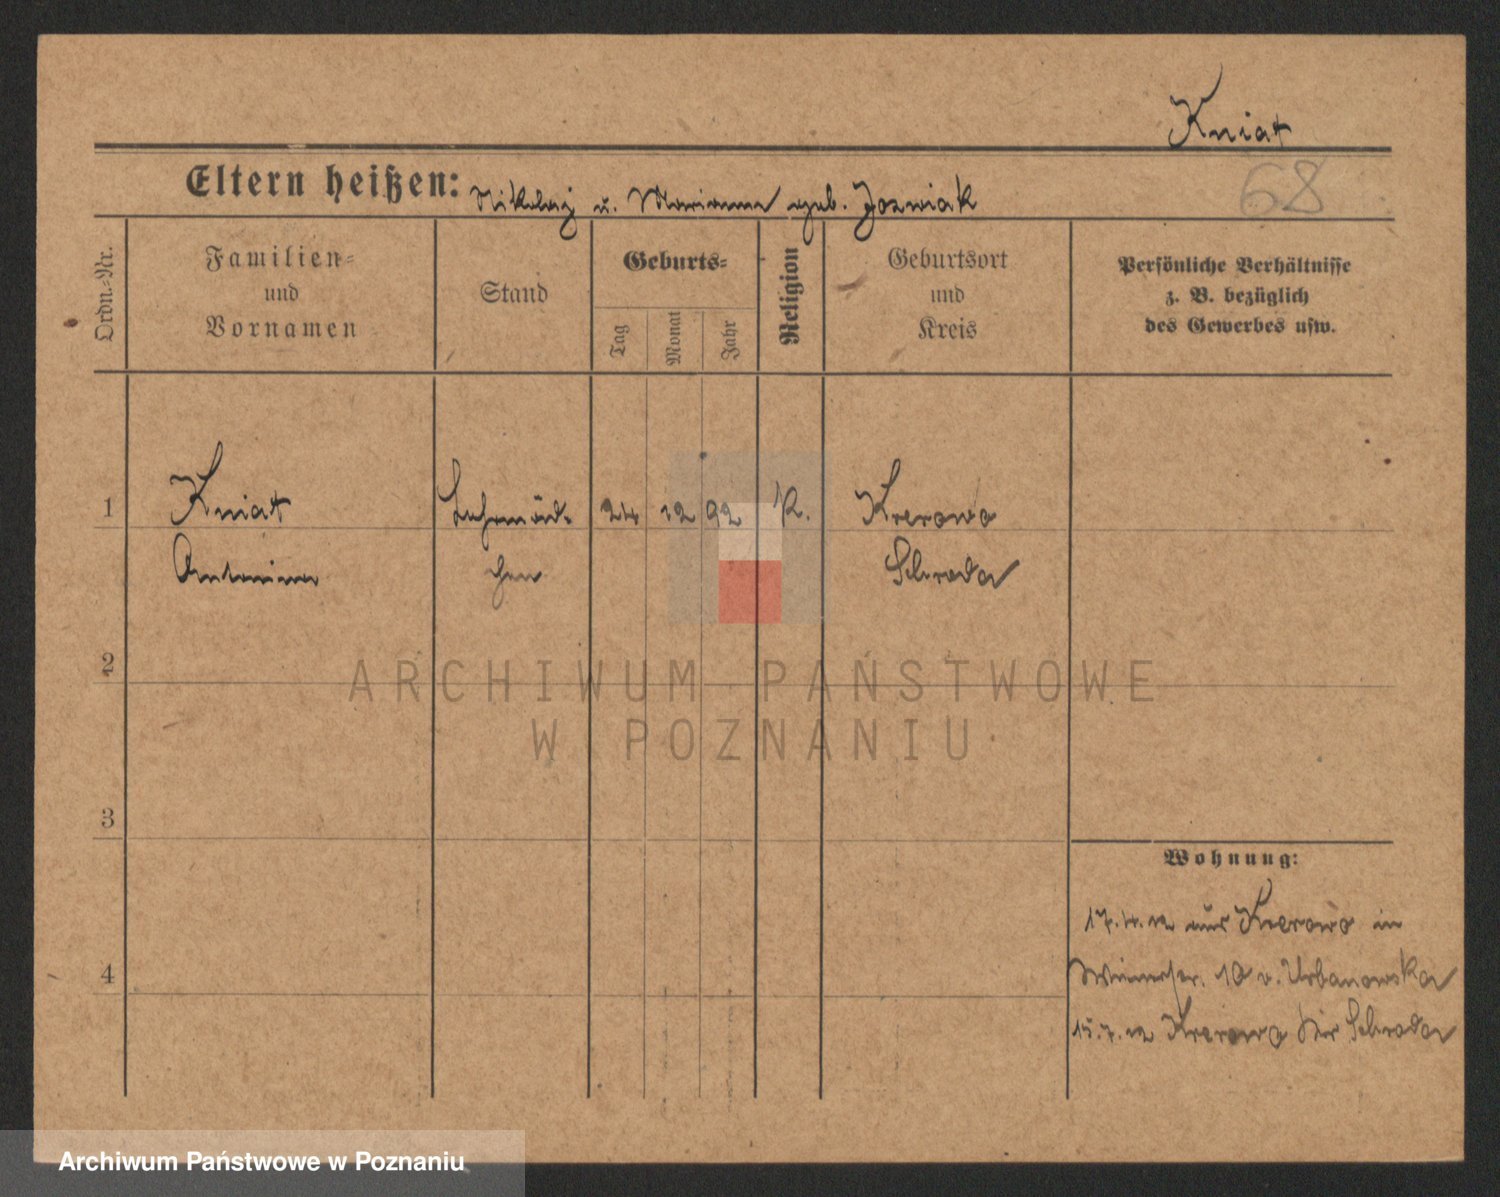 Kniat
68
Eltern heißen: Nikolaj u. Marianna geb. Jozwiak
Ordn.-Nr.
Familien-
und
Vornamen
Stand
Geburts-
Tag
Monat
Jahr
Religion
Geburtsort
und
Kreis
Persönliche Verhältnisse
z. B. bezüglich
des Gewerbes usw.
1 Kniat Lehrmäd- 24 12 92 K. Krerowo
Antonina chen Schroda
2
ARCHIWUM PAŃSTWOWE
W POZNANIU
3
Wohnung:
17.4.12 aus Krerowo in
4
10 v. Urbanowska
15.7.12 Krerowo Kr Schroda
Archiwum Państwowe w Poznaniu